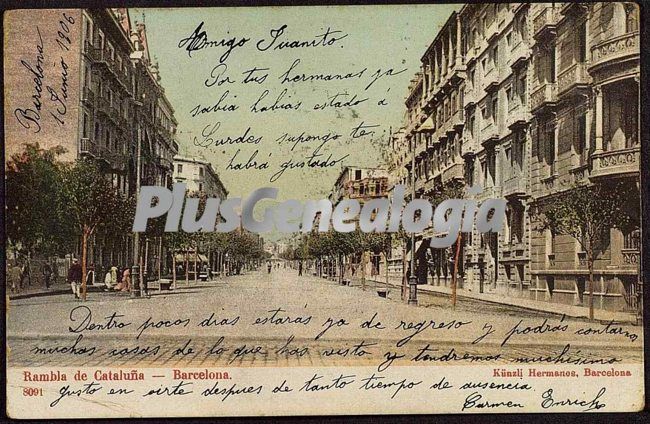 Barcelona
1 Junio 1906
Amigo Juanito.
Por tus hermanas ya
sabia habias estado á
Lourdes supongo te
habrá gustado
PlusGenealogia
Dentro pocos dias estarás ya de regreso y podrás contarnos
muchas cosas de lo que has visto y tendremos muchisimo
Rambla de Cataluña — Barcelona.
Künzli Hermanos, Barcelona
8091
gusto en oirte despues de tanto tiempo de ausencia.
Carmen Enrich